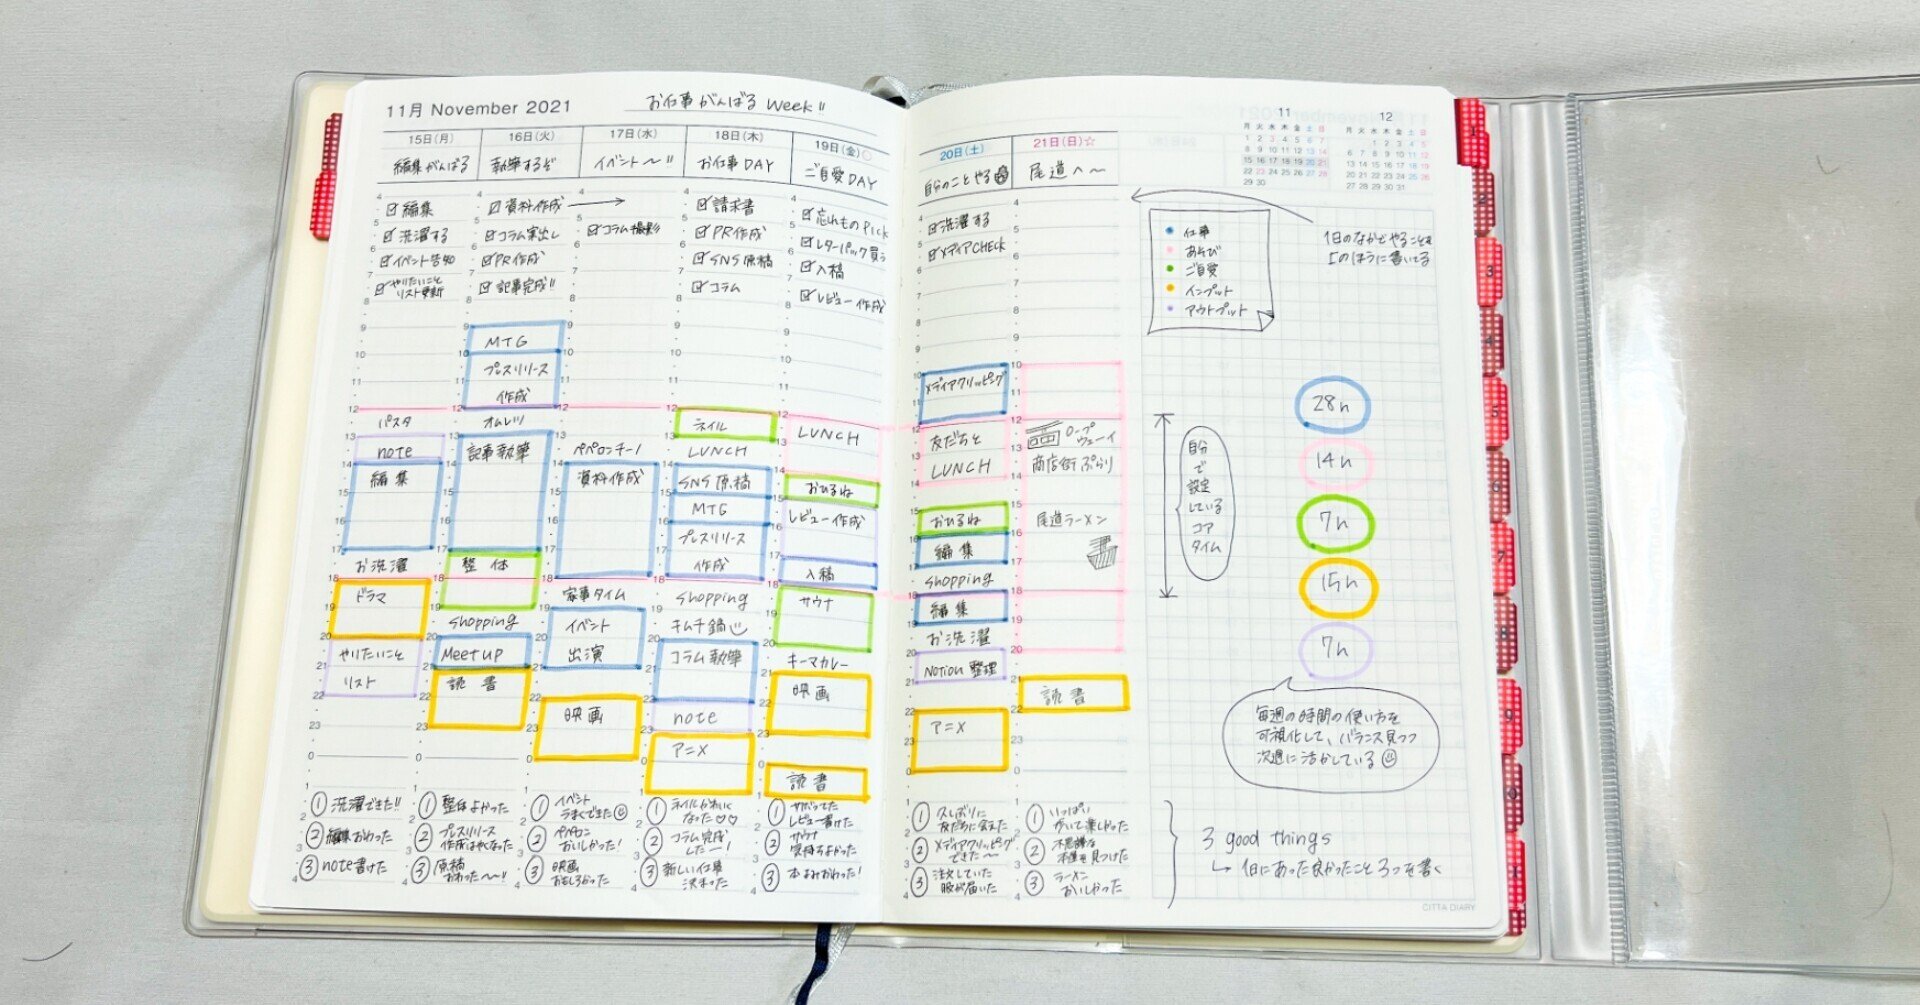 11月 November 2021
お仕事がんばる Week!!
15日(月)
編集がんばる
4
☑編集
5
☑洗濯する
6
☑イベント告知
7
☑やりたいこと
リスト更新
8
9
10
11
12
パスタ
13
note
14
編集
15
16
17
お洗濯
18
ドラマ
19
20
やりたいこと
21
リスト
22
23
0
1
①洗濯できた!!
2
②編集おわった
3
③note書けた
4
16日(火)
執筆するぞ
☑資料作成
☑コラム案出し
☑PR作成
☑記事完成!!
MTG
プレスリリース
作成
オムレツ
記事執筆
整体
shopping
Meetup
読書
①整体よかった
②プレスリリース
作成はやくなった
③原稿
おわった〜!!
17日(水)
イベント〜!!
☑コラム撮影
ペペロンチーノ
資料作成
家事タイム
イベント
出演
映画
①イベント
うまくできた
②ペペロン
おいしかった!
③映画
おもしろかった
18日(木)
お仕事DAY
☑請求書
☑PR作成
☑SNS原稿
☑コラム
ネイル
LUNCH
SNS原稿
MTG
プレスリリース
作成
shopping
キムチ鍋
コラム執筆
note
アニメ
①ネイルかわいく
なった♡♡
②コラム完成
した〜!
③新しい仕事
決まった
19日(金)
ご自愛DAY
☑忘れものPick
☑レターパック買う
☑入稿
☑レビュー作成
LUNCH
おひるね
レビュー作成
入稿
サウナ
キーマカレー
映画
読書
レビュー書けた
②サウナ
気持ちよかった
③本よみおわった!
20日(土)
自分のことやる
☑洗濯する
☑メディアCHECK
メディアクリッピング
友だちと
LUNCH
おひるね
編集
shopping
編集
お洗濯
Notion整理
アニメ
①久しぶりに
友だちに会えた
②メディアクリッピング
できた〜
③注文していた
服が届いた
21日(日)☆
尾道へ〜
ロープ
ウェーイ
商店街ぶらり
尾道ラーメン
読書
①いっぱい
歩いて楽しかった
②不思議な
本屋を見つけた
③ラーメン
おいしかった
11
月 火 水 木 金 土 日
1 2 3 4 5 6 7
8 9 10 11 12 13 14
15 16 17 18 19 20 21
22 23 24 25 26 27 28
29 30
12
月 火 水 木 金 土 日
1 2 3 4 5
6 7 8 9 10 11 12
13 14 15 16 17 18 19
20 21 22 23 24 25 26
27 28 29 30 31
仕事
あそび
ご自愛
インプット
アウトプット
1日のなかでやることを
上のほうに書いてる
自分
で
設定
している
コア
タイム
28h
14h
7h
15h
7h
毎週の時間の使い方を
可視化して、バランス見つつ
次週に活かしている
3 good things
→ 1日にあった良かったこと3つを書く
CITTA DIARY